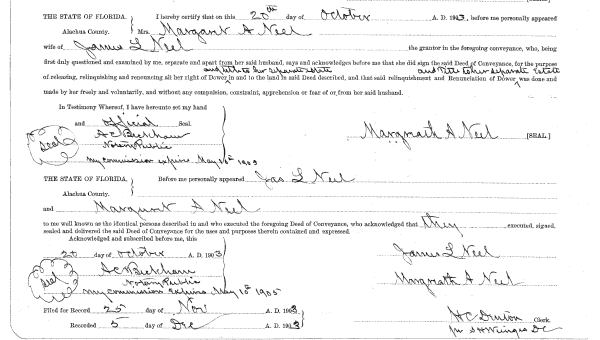 THE STATE OF FLORIDA. I hereby certify that on this 20th day of October A. D. 1903, before me personally appeared
Alachua County. Mrs. Margaret A Neel
wife of James L Neel the grantor in the foregoing conveyance, who, being
first duly questioned and examined by me, separate and apart from her said husband, says and acknowledges before me that she did sign the said Deed of Conveyance, for the purpose
and title to her separate estate and Title to her separate Estate
of releasing, relinquishing and renouncing all her right of Dower in and to the land in said Deed described, and that said relinquishment and Renunciation of Dower was done and
made by her freely and voluntarily, and without any compulsion, constraint, apprehension or fear of or from her said husband.
In Testimony Whereof, I have hereunto set my hand
and official Seal
Seal
A C Beckham
Notary Public
my commission expires May 10th 1905
Margrath A Neel [SEAL]
THE STATE OF FLORIDA. Before me personally appeared Jas. L Neel
Alachua County.
and Margaret A Neel
to me well known as the identical persons described in and who executed the foregoing Deed of Conveyance, who acknowledged that they executed, signed,
sealed and delivered the said Deed of Conveyance for the uses and purposes therein contained and expressed.
Acknowledged and subscribed before me, this
20 day of October A. D. 1903
James L Neel
Seal
A C Beckham
Notary Public
my commission expires May 10th 1905
Margrath A Neel
Filed for Record 25 day of Nov A. D. 1903
H C Denton Clerk.
Recorded 5 day of Dec A. D. 1903
per S H Wienges DC